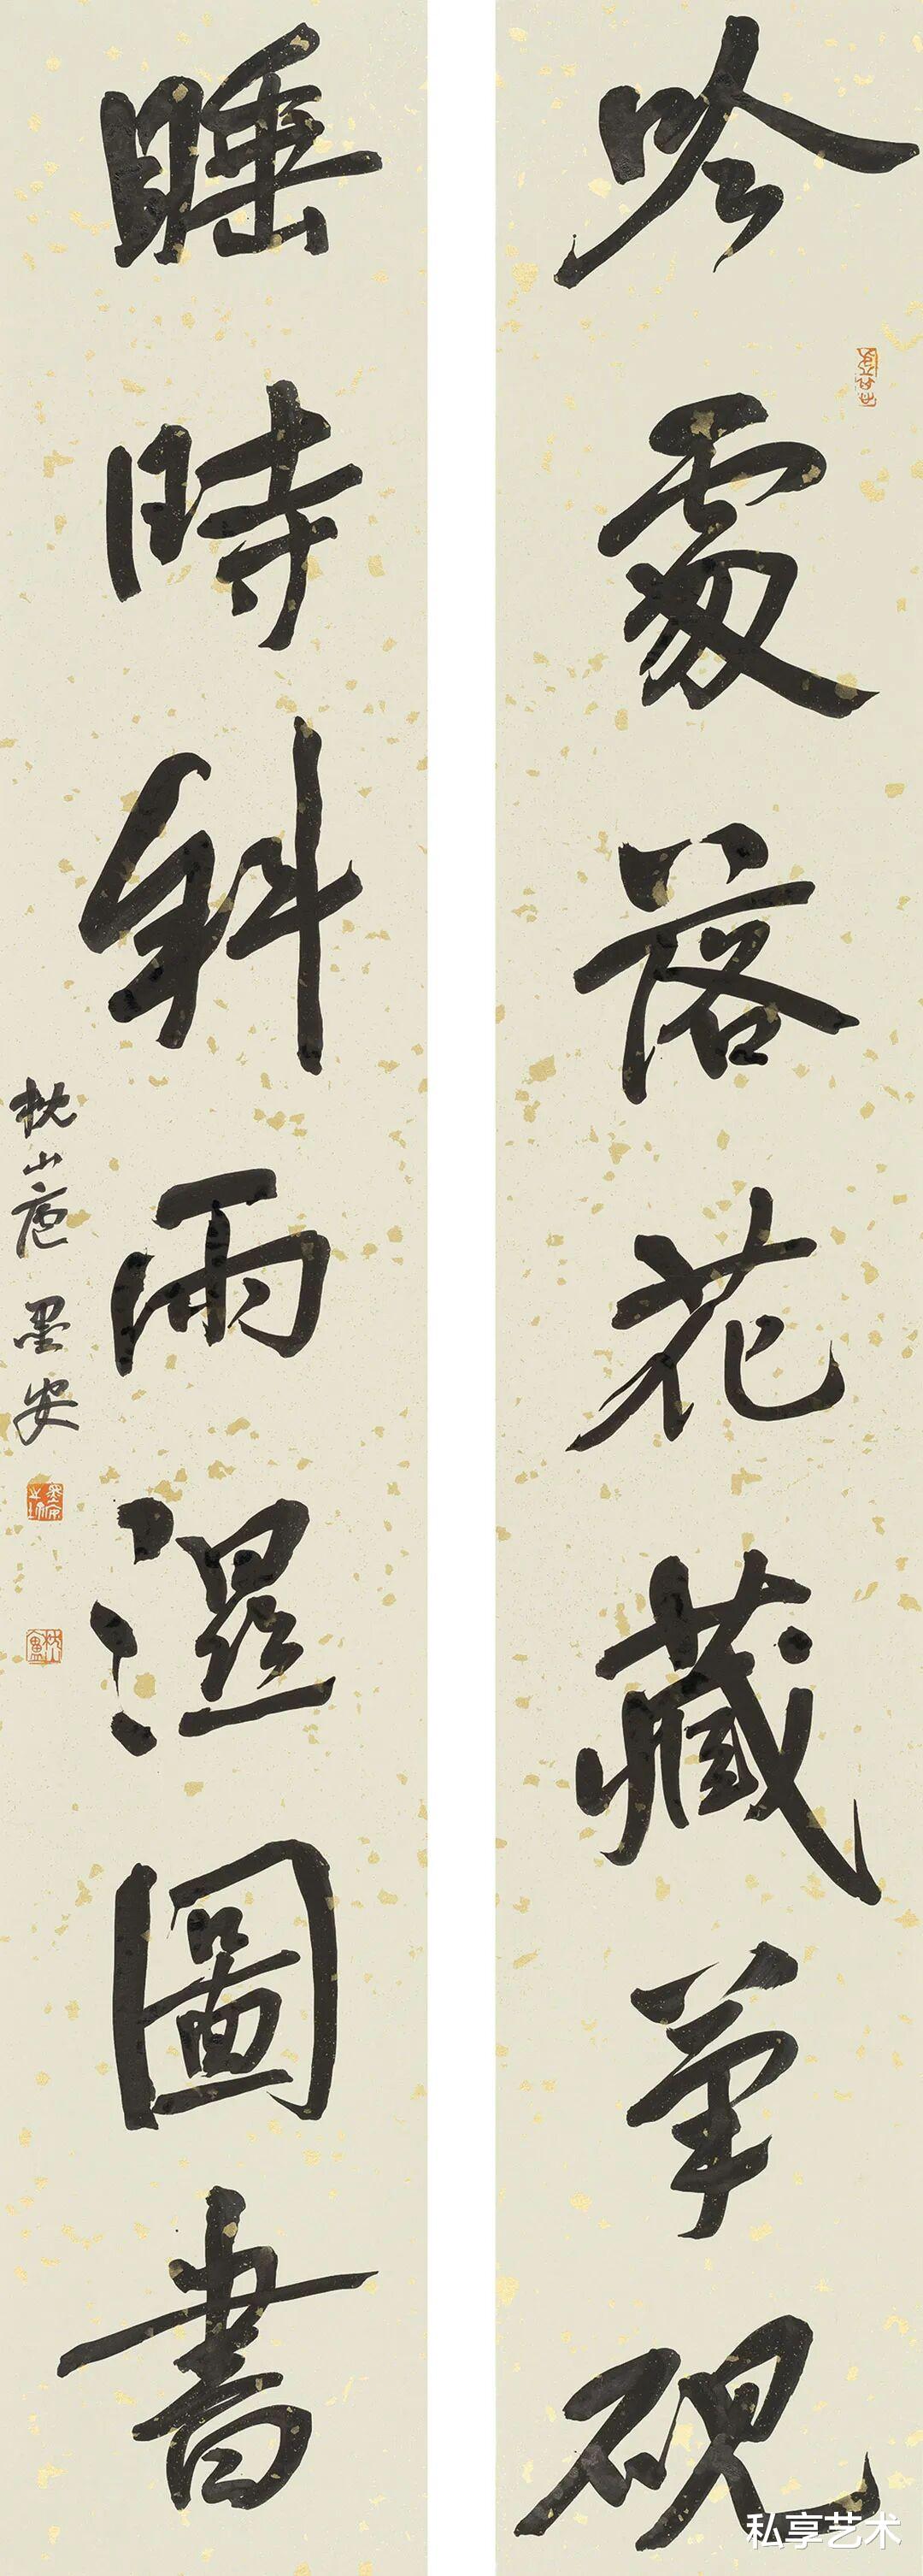 吟處落花藏筆硯
睡時斜雨濕圖書
枕山廬 墨安
私享艺术